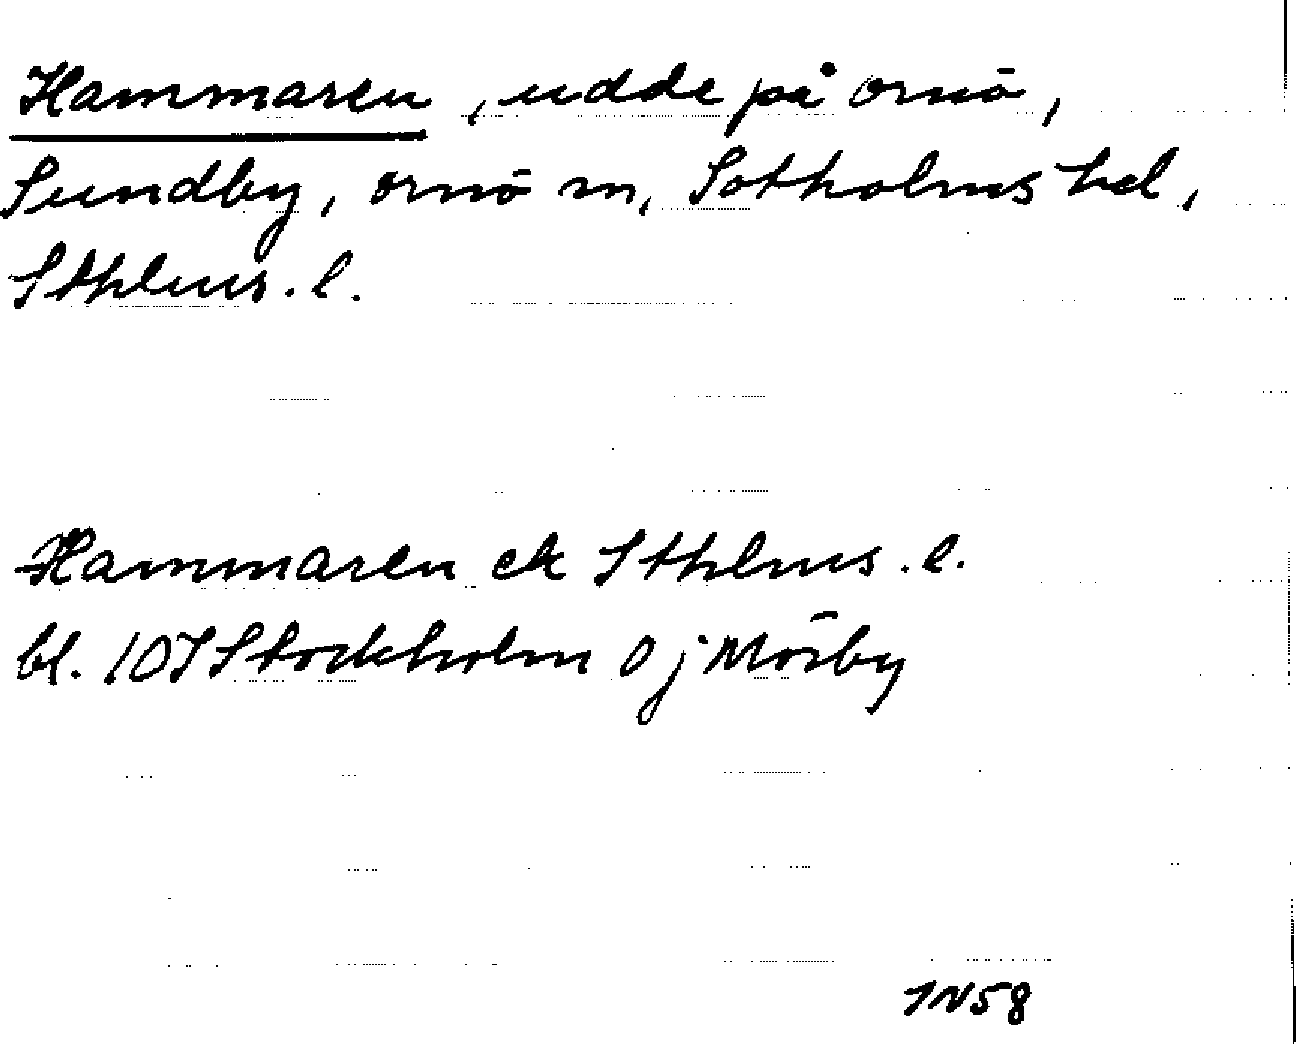 Hammaren, udde på Ornö,
Sundby, Ornö sn, Sotholms hd,
Sthlms. l.
Hammaren ek Sthlms. l.
bl. 10I Stockholm Oj Mörby
IN58